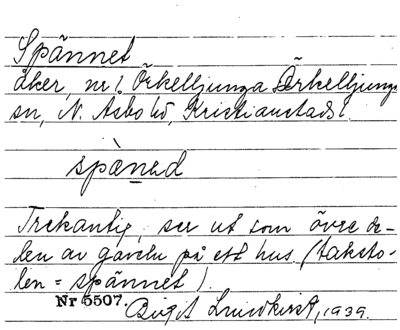 Spännet
åker, nr 1. Örkelljunga Örkelljunga
sn, N. Åsbo hd, Kristianstads l.
spænəd
Trekantig, ser ut som övre de-
len av gaveln på ett hus. (taksto-
len = spännet).
Nr 5507.
Birgit Lundkvist, 1939.